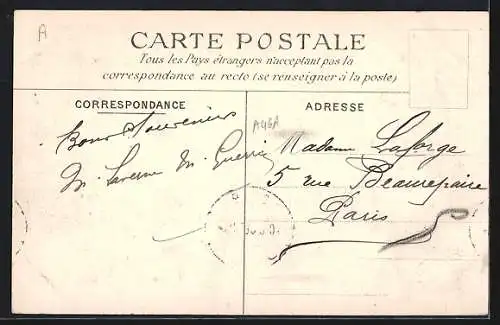 A
CARTE POSTALE
Tous les Pays étrangers n'acceptant pas la
correspondance au recto (se renseigner à la poste)
CORRESPONDANCE
Bons Souvenirs
M. M. Guerin
ADRESSE
Madame Laforge
5 rue Beaurepaire
Paris